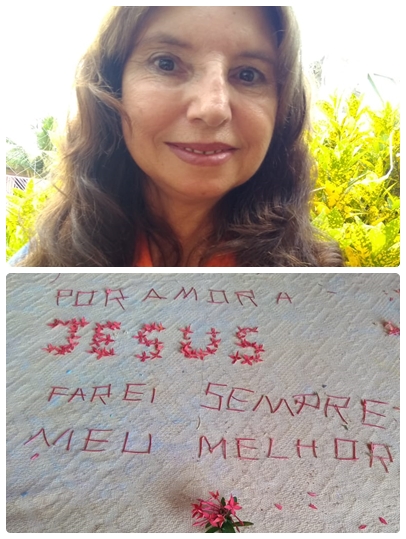 POR AMOR A
JESUS
FAREI SEMPRE
MEU MELHOR